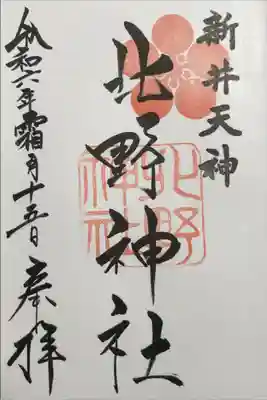 新井天神
北野神社
北野神社
令和六年霜月十五日 奉拝